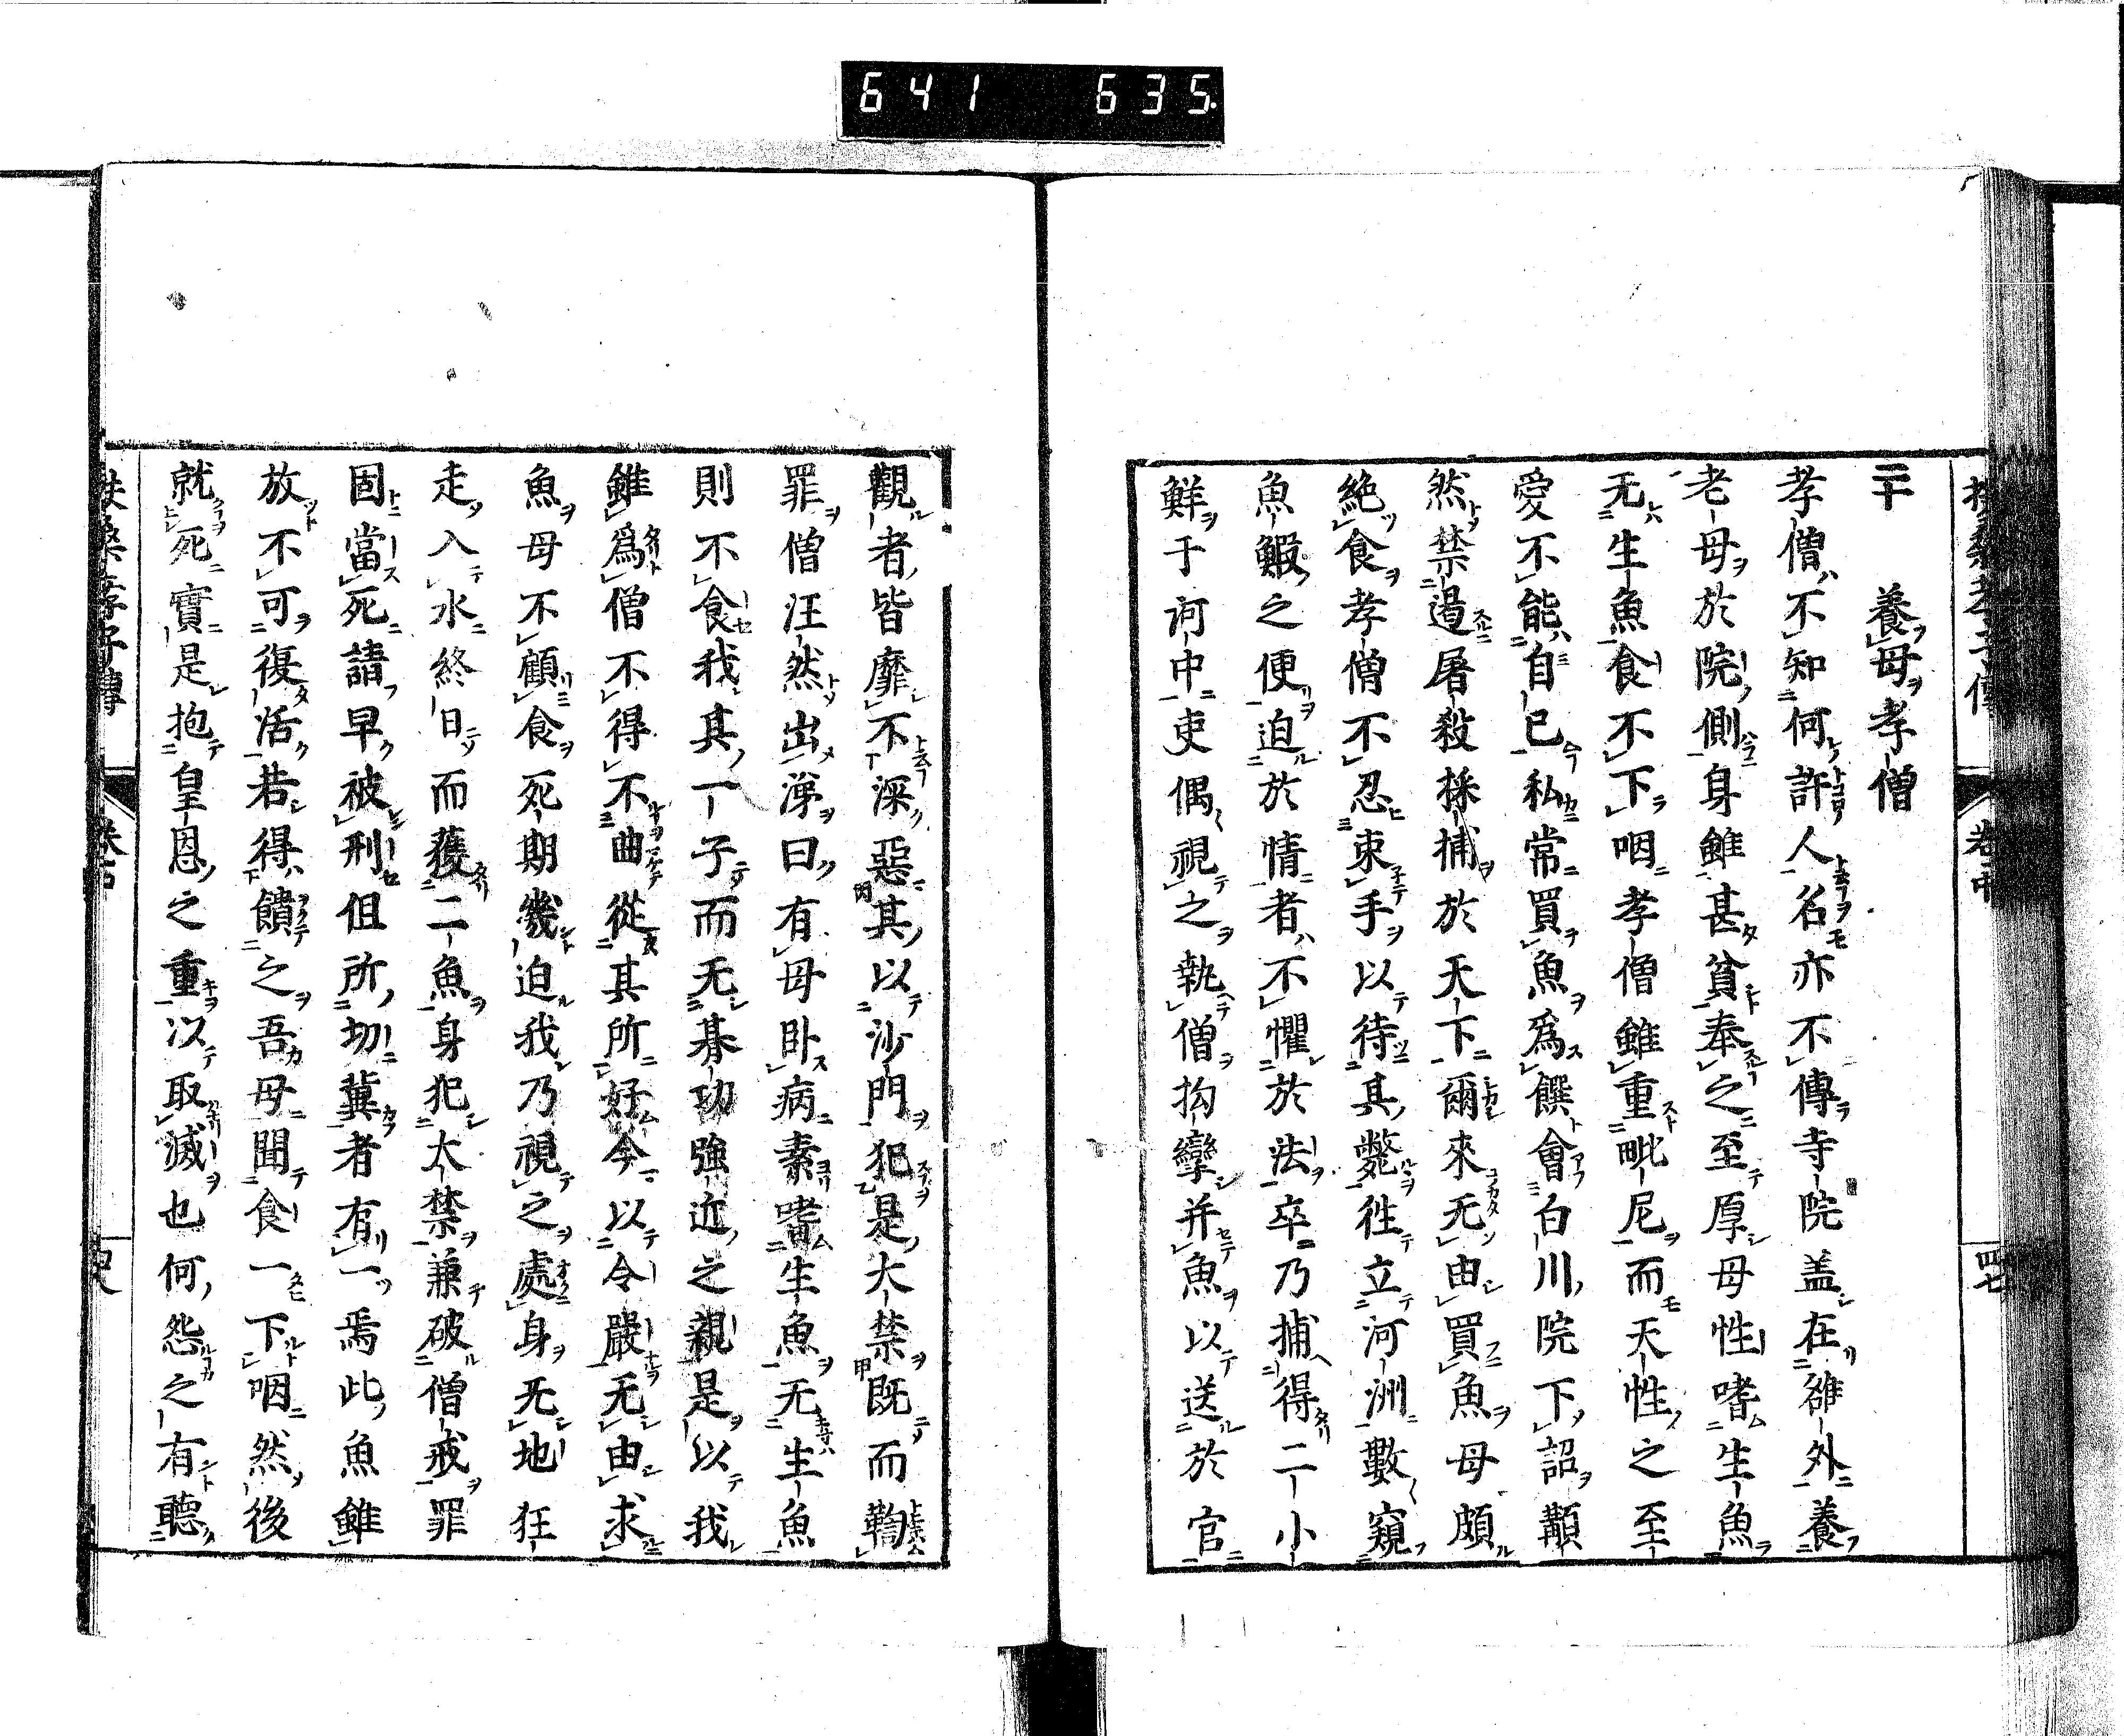 641 635
扶桑孝子傳 卷中 四七
二十 養母孝僧
孝僧不知何許人名亦不傳寺院盖在雒外養
老母於院側身雖甚貧奉之至厚母性嗜生魚
无生魚食不下咽孝僧雖重毗尼而天性之至
愛不能自已私常買魚爲饌會白川院下詔顓
然禁遏屠殺採捕於天下爾來无由買魚母頗
絶食孝僧不忍束手以待其斃徃立河洲數窺
魚鰕之便迫於情者不懼於法卒乃捕得二小
鮮于河中吏偶視之執僧拘攣并魚以送於官
觀者皆靡不深惡其以沙門犯是大禁既而鞫
罪僧汪然出涕曰有母卧病素嗜生魚无生魚
則不食我其一子而无朞功強近之親是以我
雖爲僧不得不曲從其所好今以令嚴无由求
魚母不顧食死期幾迫我乃視之處身无地狂
走入水終日而獲二魚身犯大禁兼破僧戒罪
固當死請早被刑但所切冀者有一焉此魚雖
放不可復活若得饋之吾母聞食一下咽然後
就死實是抱皇恩之重以取滅也何怨之有聽
扶桑孝子傳